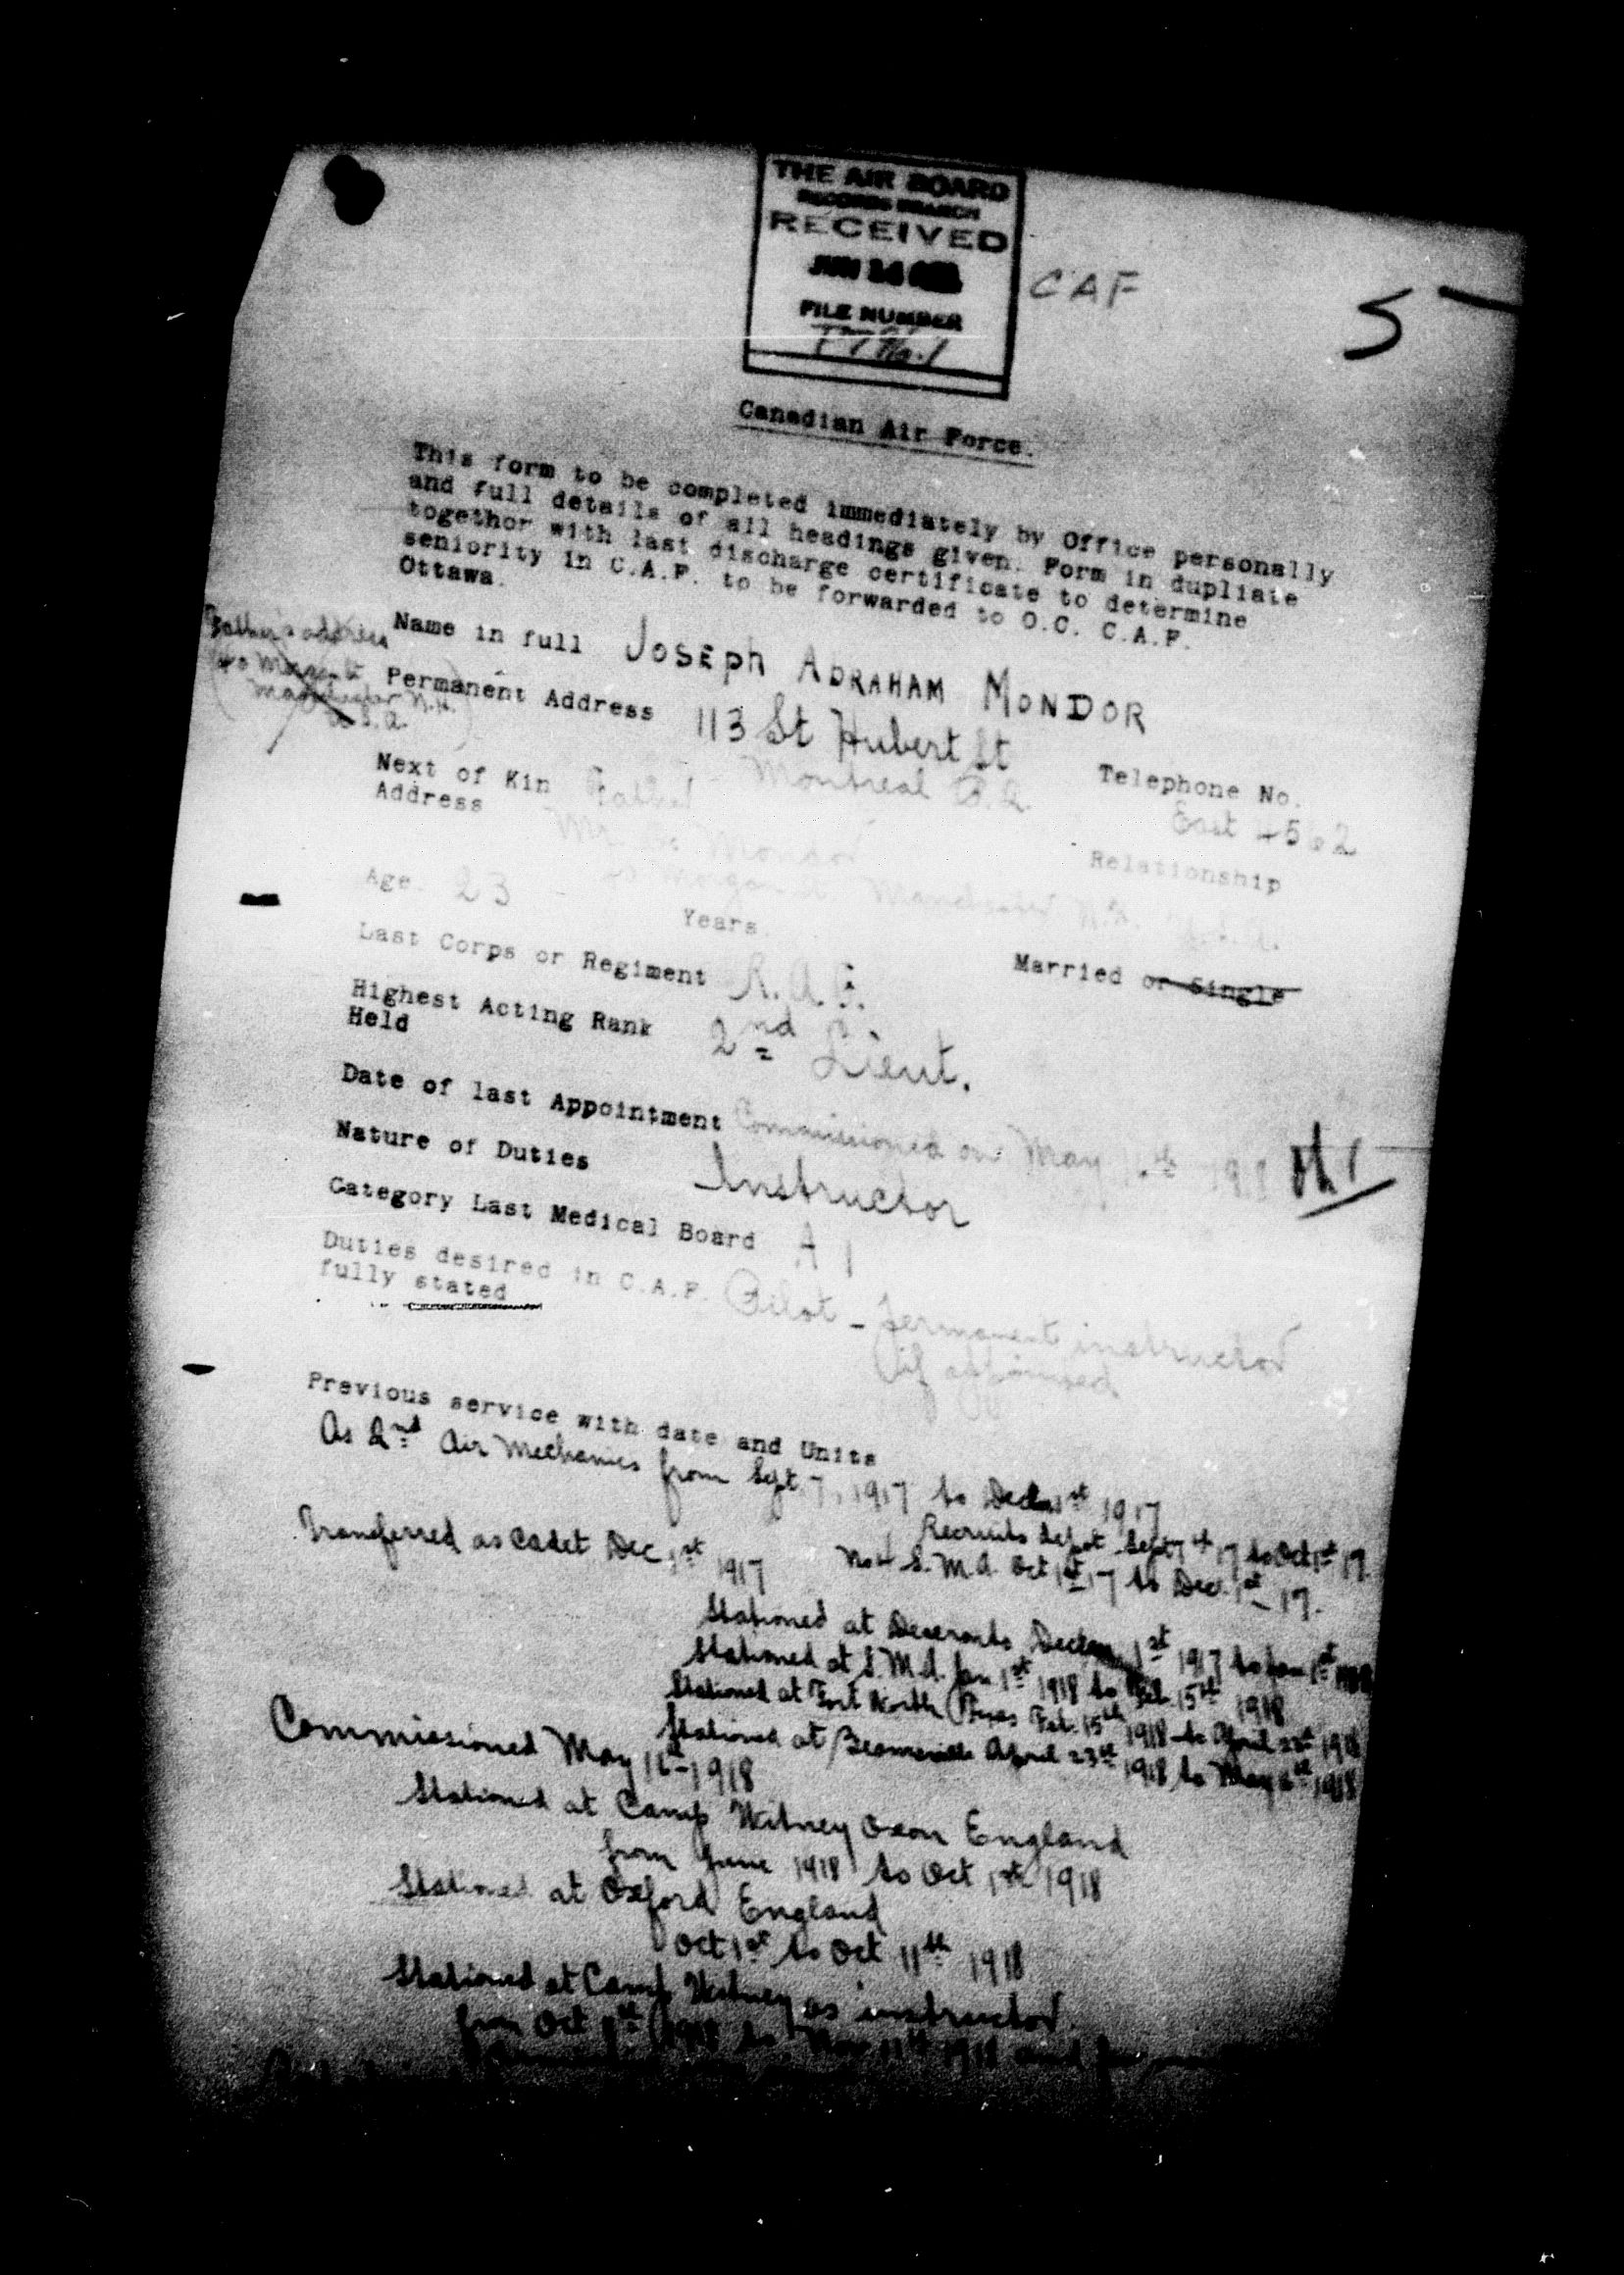 THE AIR BOARD
RECORDS BRANCH
RECEIVED
JUN 14
FILE NUMBER
CAF
5
Canadian Air Force.
This form to be completed immediately by Office personally
and full details of all headings given. Form in dupliate
together with last discharge certificate to determine
seniority in C.A.F. to be forwarded to O.C. C.A.F.
Ottawa.
Father's address
Manchester N.H.
U.S.A.
Name in full JOSEPH ABRAHAM MONDOR
Permanent Address 113 St Hubert St
Montreal P.Q. Telephone No.
East 4562
Next of Kin Father
Address
Mr. Mondor Relationship
Morgan St Manchester N.H. U.S.A.
Age 23 Years.
Married or Single
Last Corps or Regiment R.A.F.
Highest Acting Rank 2nd Lieut.
Held
Date of last Appointment Commissioned on May 1918
Nature of Duties Instructor
Category Last Medical Board A 1
Duties desired in C.A.F. Pilot - Permanent instructor
fully stated if
Previous service with date and Units
As 2nd Air Mechanics from Sept. 7, 1917 to Dec 1st 1917
Recruits depot Sept 7th 17 to Oct 1st 17.
Transferred as Cadet Dec 1st 1917 No 4 S.M.A. Oct 1st 17 to Dec. 1st 17.
Stationed at Deseronto 1st 1917 to Jan 1st
Stationed at S.M.A. Jan 1st 1918 to Feb. 15th 1918
Stationed at Fort Worth Texas Feb. 15th 1918 to April 1918
Stationed at Beamsville April 23rd 1918 to May 1918
Commissioned May 1918
Stationed at Camp Witney Oxon England
from June 1918 to Oct 1st 1918
Stationed at Oxford England
Oct 1st to Oct 11th 1918
Stationed at Camp Witney as instructor.
from Oct 1918 to Nov 11th 1918 and for